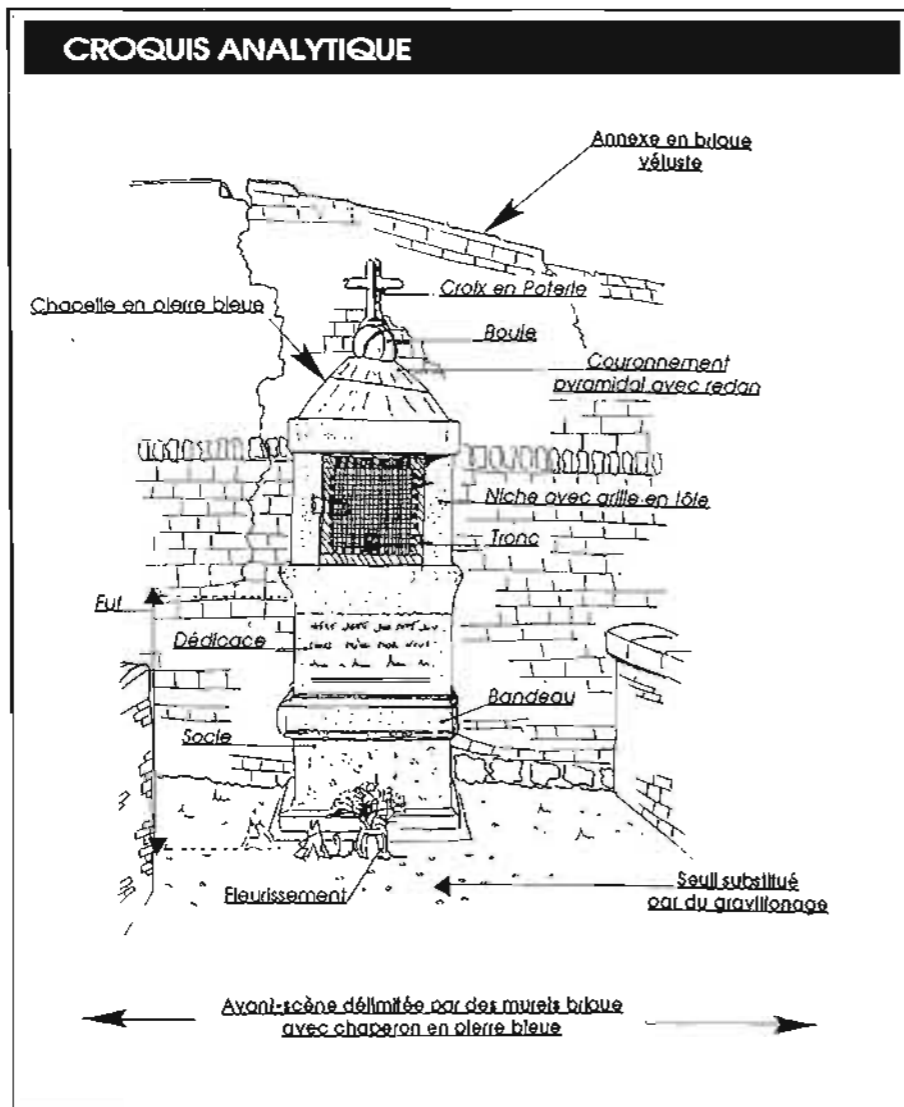 CROQUIS ANALYTIQUE
Annexe en brique
vétuste
Croix en Poterie
Chapelle en pierre bleue
Boule
Couronnement
pyramidal avec redan
Niche avec grille en tôle
Tronc
Fut
Dédicace
Bandeau
Socle
Fleurissement
Seuil substitué
par du gravillonage
Avant-scène délimitée par des murets brique
avec chaperon en pierre bleue